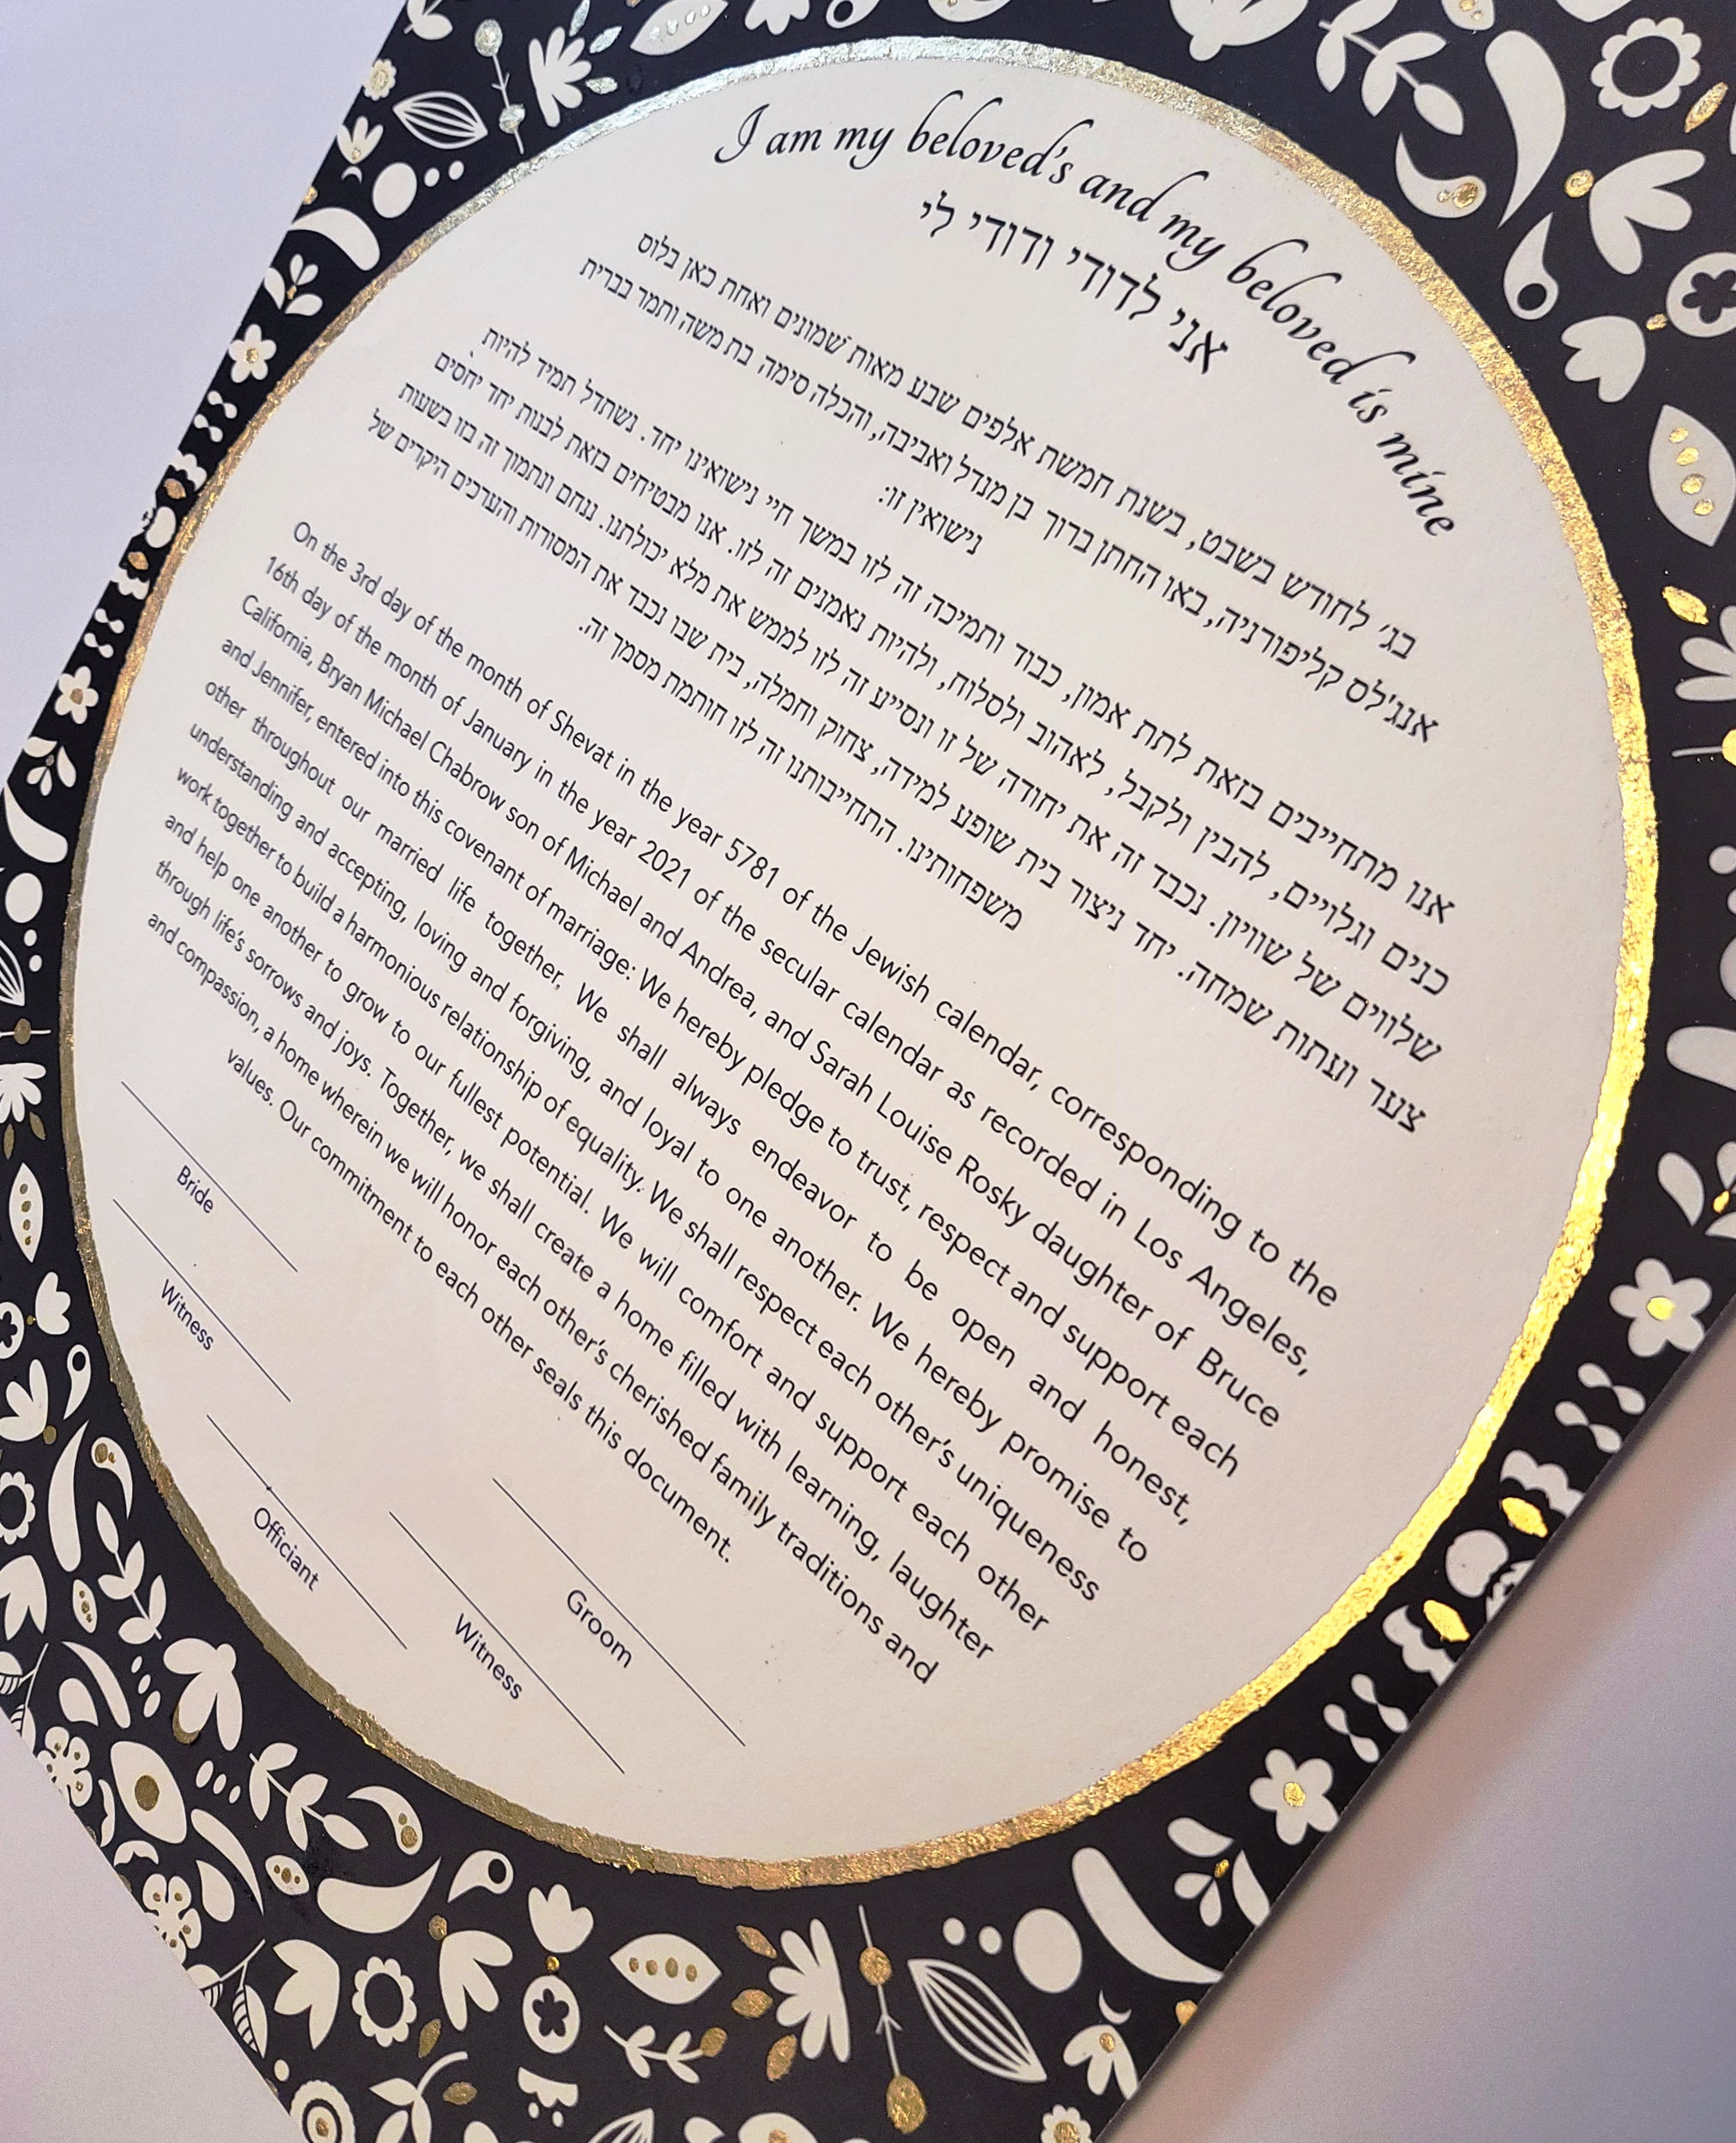 I am my beloved's and my beloved is mine
אני לדודי ודודי לי
בג׳ לחודש בשבט, בשנת חמשת אלפים שבע מאות שמונים ואחת כאן בלוס
אנג׳לס קליפורניה, באו החתן ברוך בן מנדל ואביבה, והכלה סימה בת משה ותמר בברית
נישואין זו:
אנו מתחייבים בזאת לתת אמון, כבוד ותמיכה זה לזו במשך חיי נישואינו יחד. נשתדל תמיד להיות
כנים וגלויים, להבין ולקבל, לאהוב ולסלוח, ולהיות נאמנים זה לזו. אנו מבטיחים בזאת לבנות יחד יחסים
שלווים של שוויון. נכבד זה את יחודה של זו ונסייע זה לזו לממש את מלא יכולתנו. ננחם ונתמוך זה בזו בשעות
צער ועתות שמחה. יחד ניצור בית שופע למידה, צחוק וחמלה, בית שבו נכבד את המסורות והערכים היקרים של
משפחותינו. התחייבותנו זה לזו חותמת מסמך זה.
On the 3rd day of the month of Shevat in the year 5781 of the Jewish calendar, corresponding to the
16th day of the month of January in the year 2021 of the secular calendar as recorded in Los Angeles,
California, Bryan Michael Chabrow son of Michael and Andrea, and Sarah Louise Rosky daughter of Bruce
and Jennifer, entered into this covenant of marriage: We hereby pledge to trust, respect and support each
other throughout our married life together, We shall always endeavor to be open and honest,
understanding and accepting, loving and forgiving, and loyal to one another. We hereby promise to
work together to build a harmonious relationship of equality. We shall respect each other's uniqueness
and help one another to grow to our fullest potential. We will comfort and support each other
through life's sorrows and joys. Together, we shall create a home filled with learning, laughter
and compassion, a home wherein we will honor each other's cherished family traditions and
values. Our commitment to each other seals this document.
Bride
Groom
Witness
Witness
Officiant